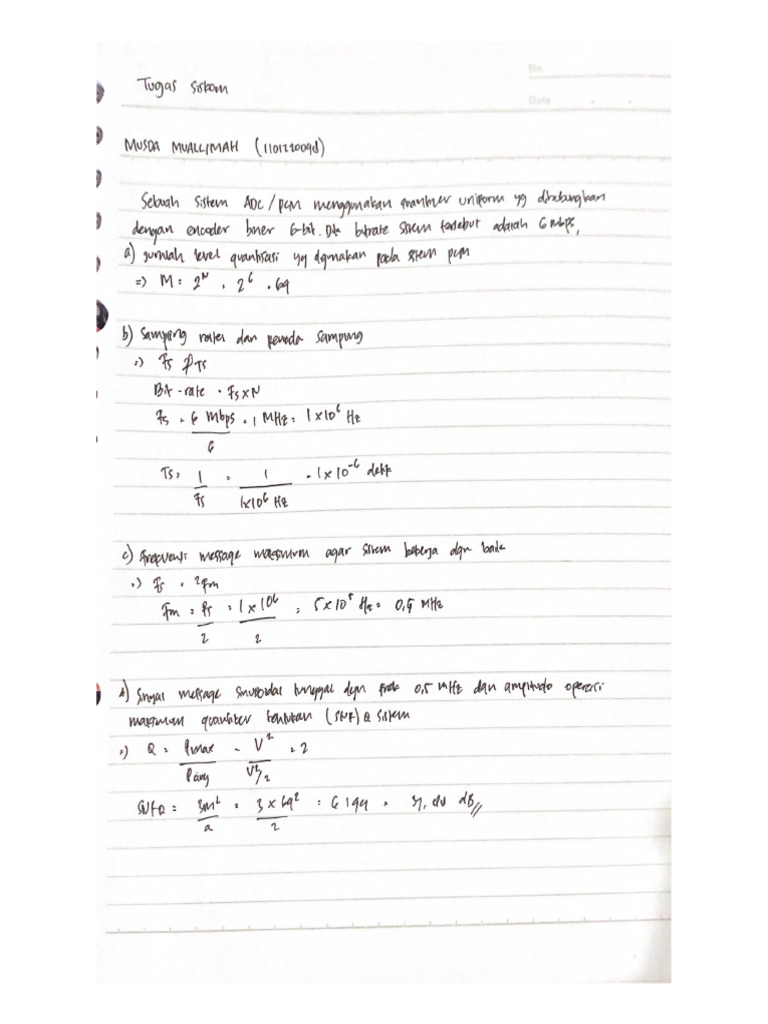 No.
Date
Tugas Siskom
MUSDA MUALLIMAH (1101220098)
Sebuah sistem ADC/PCM menggunakan quantizer uniform yg dihubungkan
dengan encoder biner 6-bit. Dik bitrate sistem tersebut adalah 6 Mbps,
a) Jumlah level quantisasi yg dgunakan pada sistem pcm
=> M = 2^N = 2^6 = 64
b) Sampling rates dan perioda sampling
=) Fs & Ts
Bit-rate = Fs x N
Fs = 6 Mbps / 6 = 1 MHz = 1 x 10^6 Hz
Ts = 1 / Fs = 1 / 1x10^6 Hz = 1 x 10^-6 detik
c) Frekuensi message maksimum agar sistem bekerja dgn baik
=) Fs = 2Fm
Fm = Fs / 2 = 1 x 10^6 / 2 = 5 x 10^5 Hz = 0,5 MHz
d) Sinyal message sinusoidal tunggal dgn frek 0,5 MHz dan amplitudo operasi
maksimum quantizer tentukan (SNR) Q sistem
=) Q = Pmax / Pavg = V^2 / V^2/2 = 2
SNRQ = 3M^2 / Q = 3 x 64^2 / 2 = 6144 = dB //